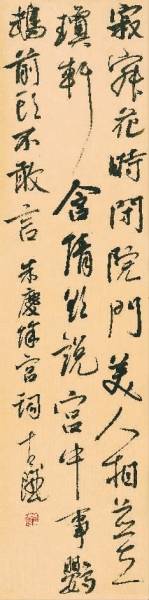 寂寂花時閉院門美人相並立
瓊軒含情欲說宮中事鸚
鵡前頭不敢言 朱慶餘宮詞